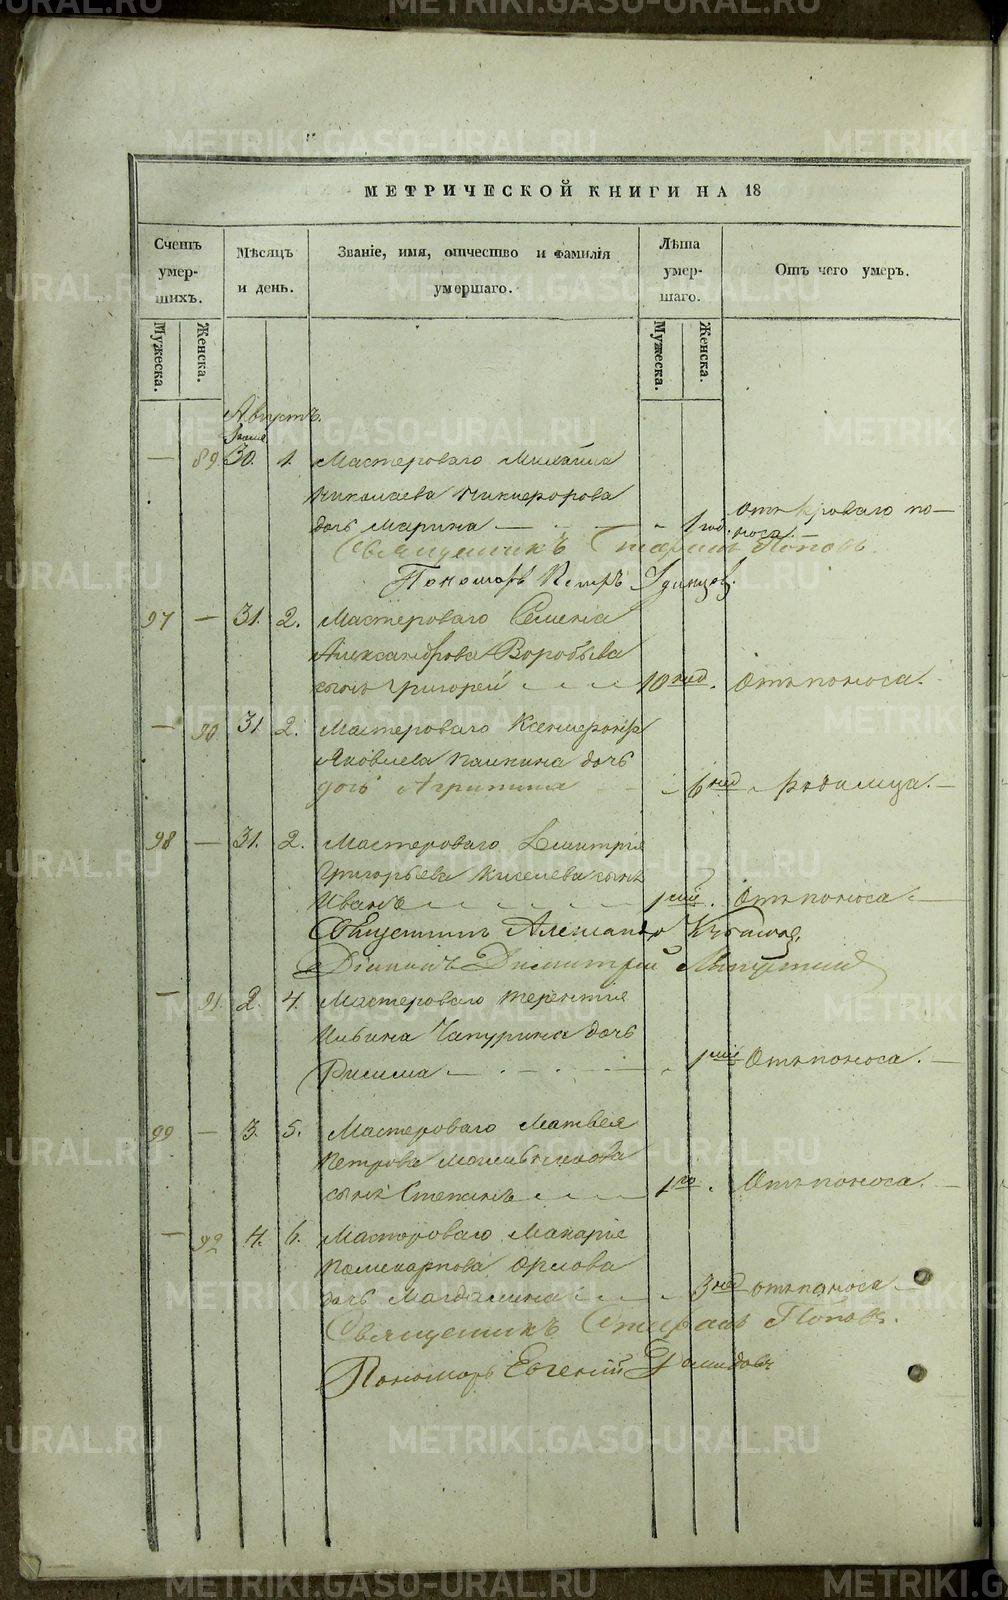 МЕТРИЧЕСКОЙ КНИГИ НА 18
Счетъ умер- шихъ.
Мужеска.
Женска.
Мѣсяцъ и день.
Званіе, имя, отчество и фамилія умершаго.
Лѣта умер- шаго.
Мужеска.
Женска.
Отъ чего умеръ.
Августъ.
Іюля
— 89 30. 1. Мастероваго Михаила
Николаева Никифорова
дочь Марина — 1 год. отъ Кроваго по-
носа. —
Священникъ Поповъ.
Пономарь Петръ Удинцов.
97 — 31. 2. Мастероваго Семена
Александрова Воробьева
сынъ Григорей 10 нед. Отъ поноса.
— 90 31. 2. Мастероваго
Яковлева дочь
Агрипина 6 нед родимца. —
98 — 31. 2. Мастероваго Димитрія
Григорьева Киселева сынъ
Иванъ 1 Отъ поноса. —
Александръ
Діаконъ Димитрій
— 91. 2. 4. Мастероваго Терентія
Ильина Чапурина дочь
1 Отъ поноса. —
99 — 3. 5. Мастероваго Матвея
Петрова
сынъ Степанъ 1 го. Отъ поноса. —
— 92 4. 6. Мастероваго Макарія
Поликарпова Орлова
дочь Магдалина 3 нед отъ поноса —
Священникъ Поповъ.
Пономарь Евгеній
METRIKI.GASO-URAL.RU